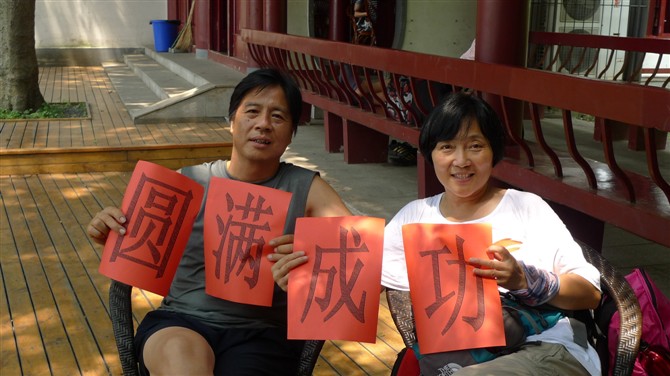 圆满成功